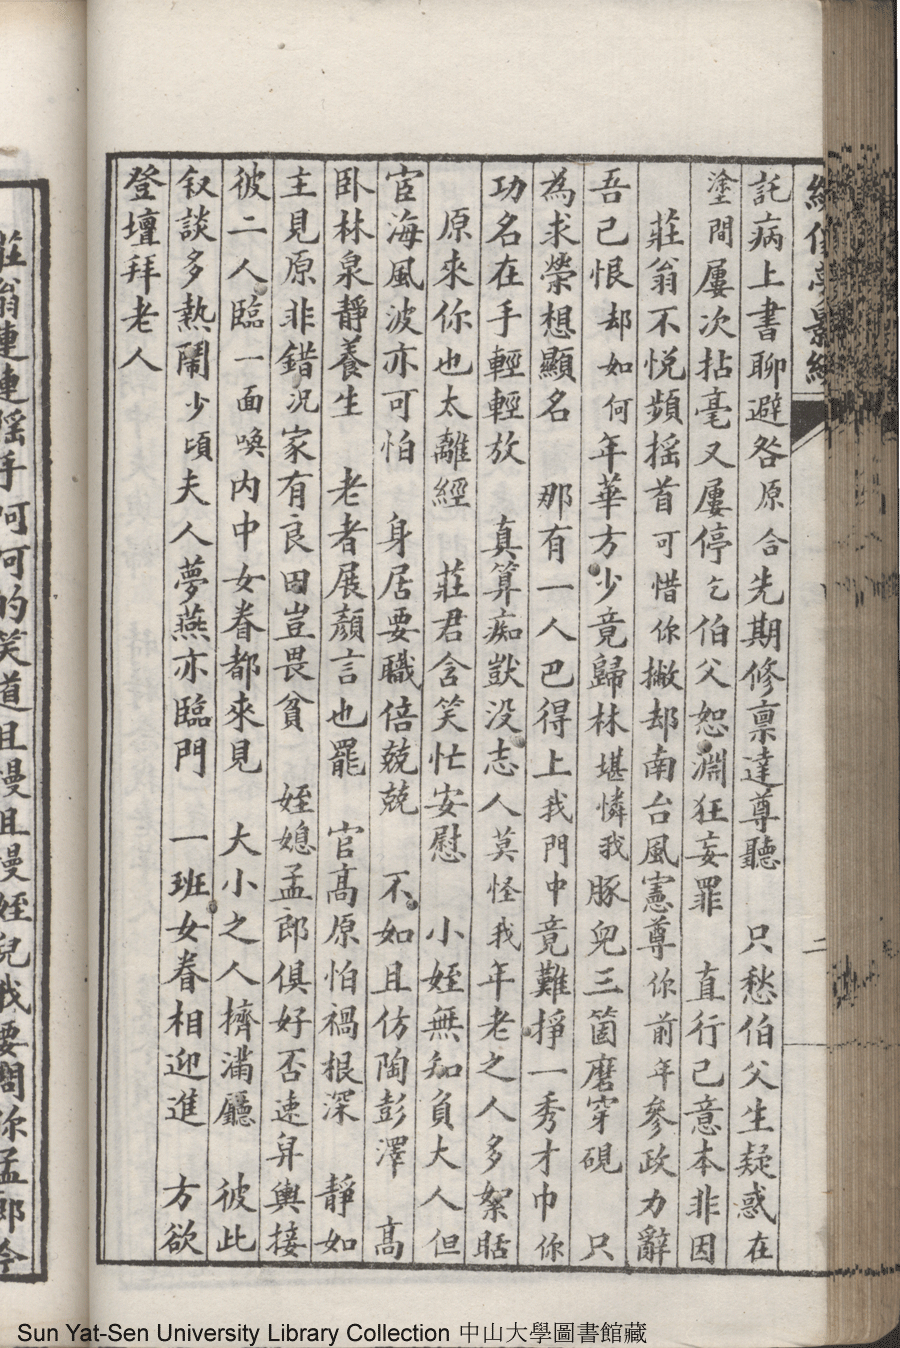 託病上書聊避咎原合先期修稟達尊聽　只愁伯父生疑惑在
塗間屢次拈毫又屢停乞伯父恕淵狂妄罪　直行己意本非因
莊翁不悅頻摇首可惜你撇却南台風憲尊你前年參政力辭
吾已恨却如何年華方少竟歸林堪憐我豚兒三箇磨穿硯　只
為求榮想顯名　那有一人巴得上我門中竟難掙一秀才巾你
功名在手輕輕放　真算痴獃没志人莫怪我年老之人多絮聒
原來你也太離經　莊君含笑忙安慰　小姪無知負大人但
宦海風波亦可怕　身居要職倍兢兢　不如且仿陶彭澤　高
卧林泉靜養生　老者展顏言也罷　官高原怕禍根深　靜如
主見原非錯况家有良田豈畏貧　姪媳孟郎俱好否速舁輿接
彼二人臨一面喚內中女眷都來見　大小之人擠滿廳　彼此
叙談多熱鬧少頃夫人夢燕亦臨門　一班女眷相迎進　方欲
登壇拜老人
莊翁連連摇手呵呵的笑道且慢且慢姪兒我要問你孟郎今
二
Sun Yat-Sen University Library Collection 中山大學圖書館藏